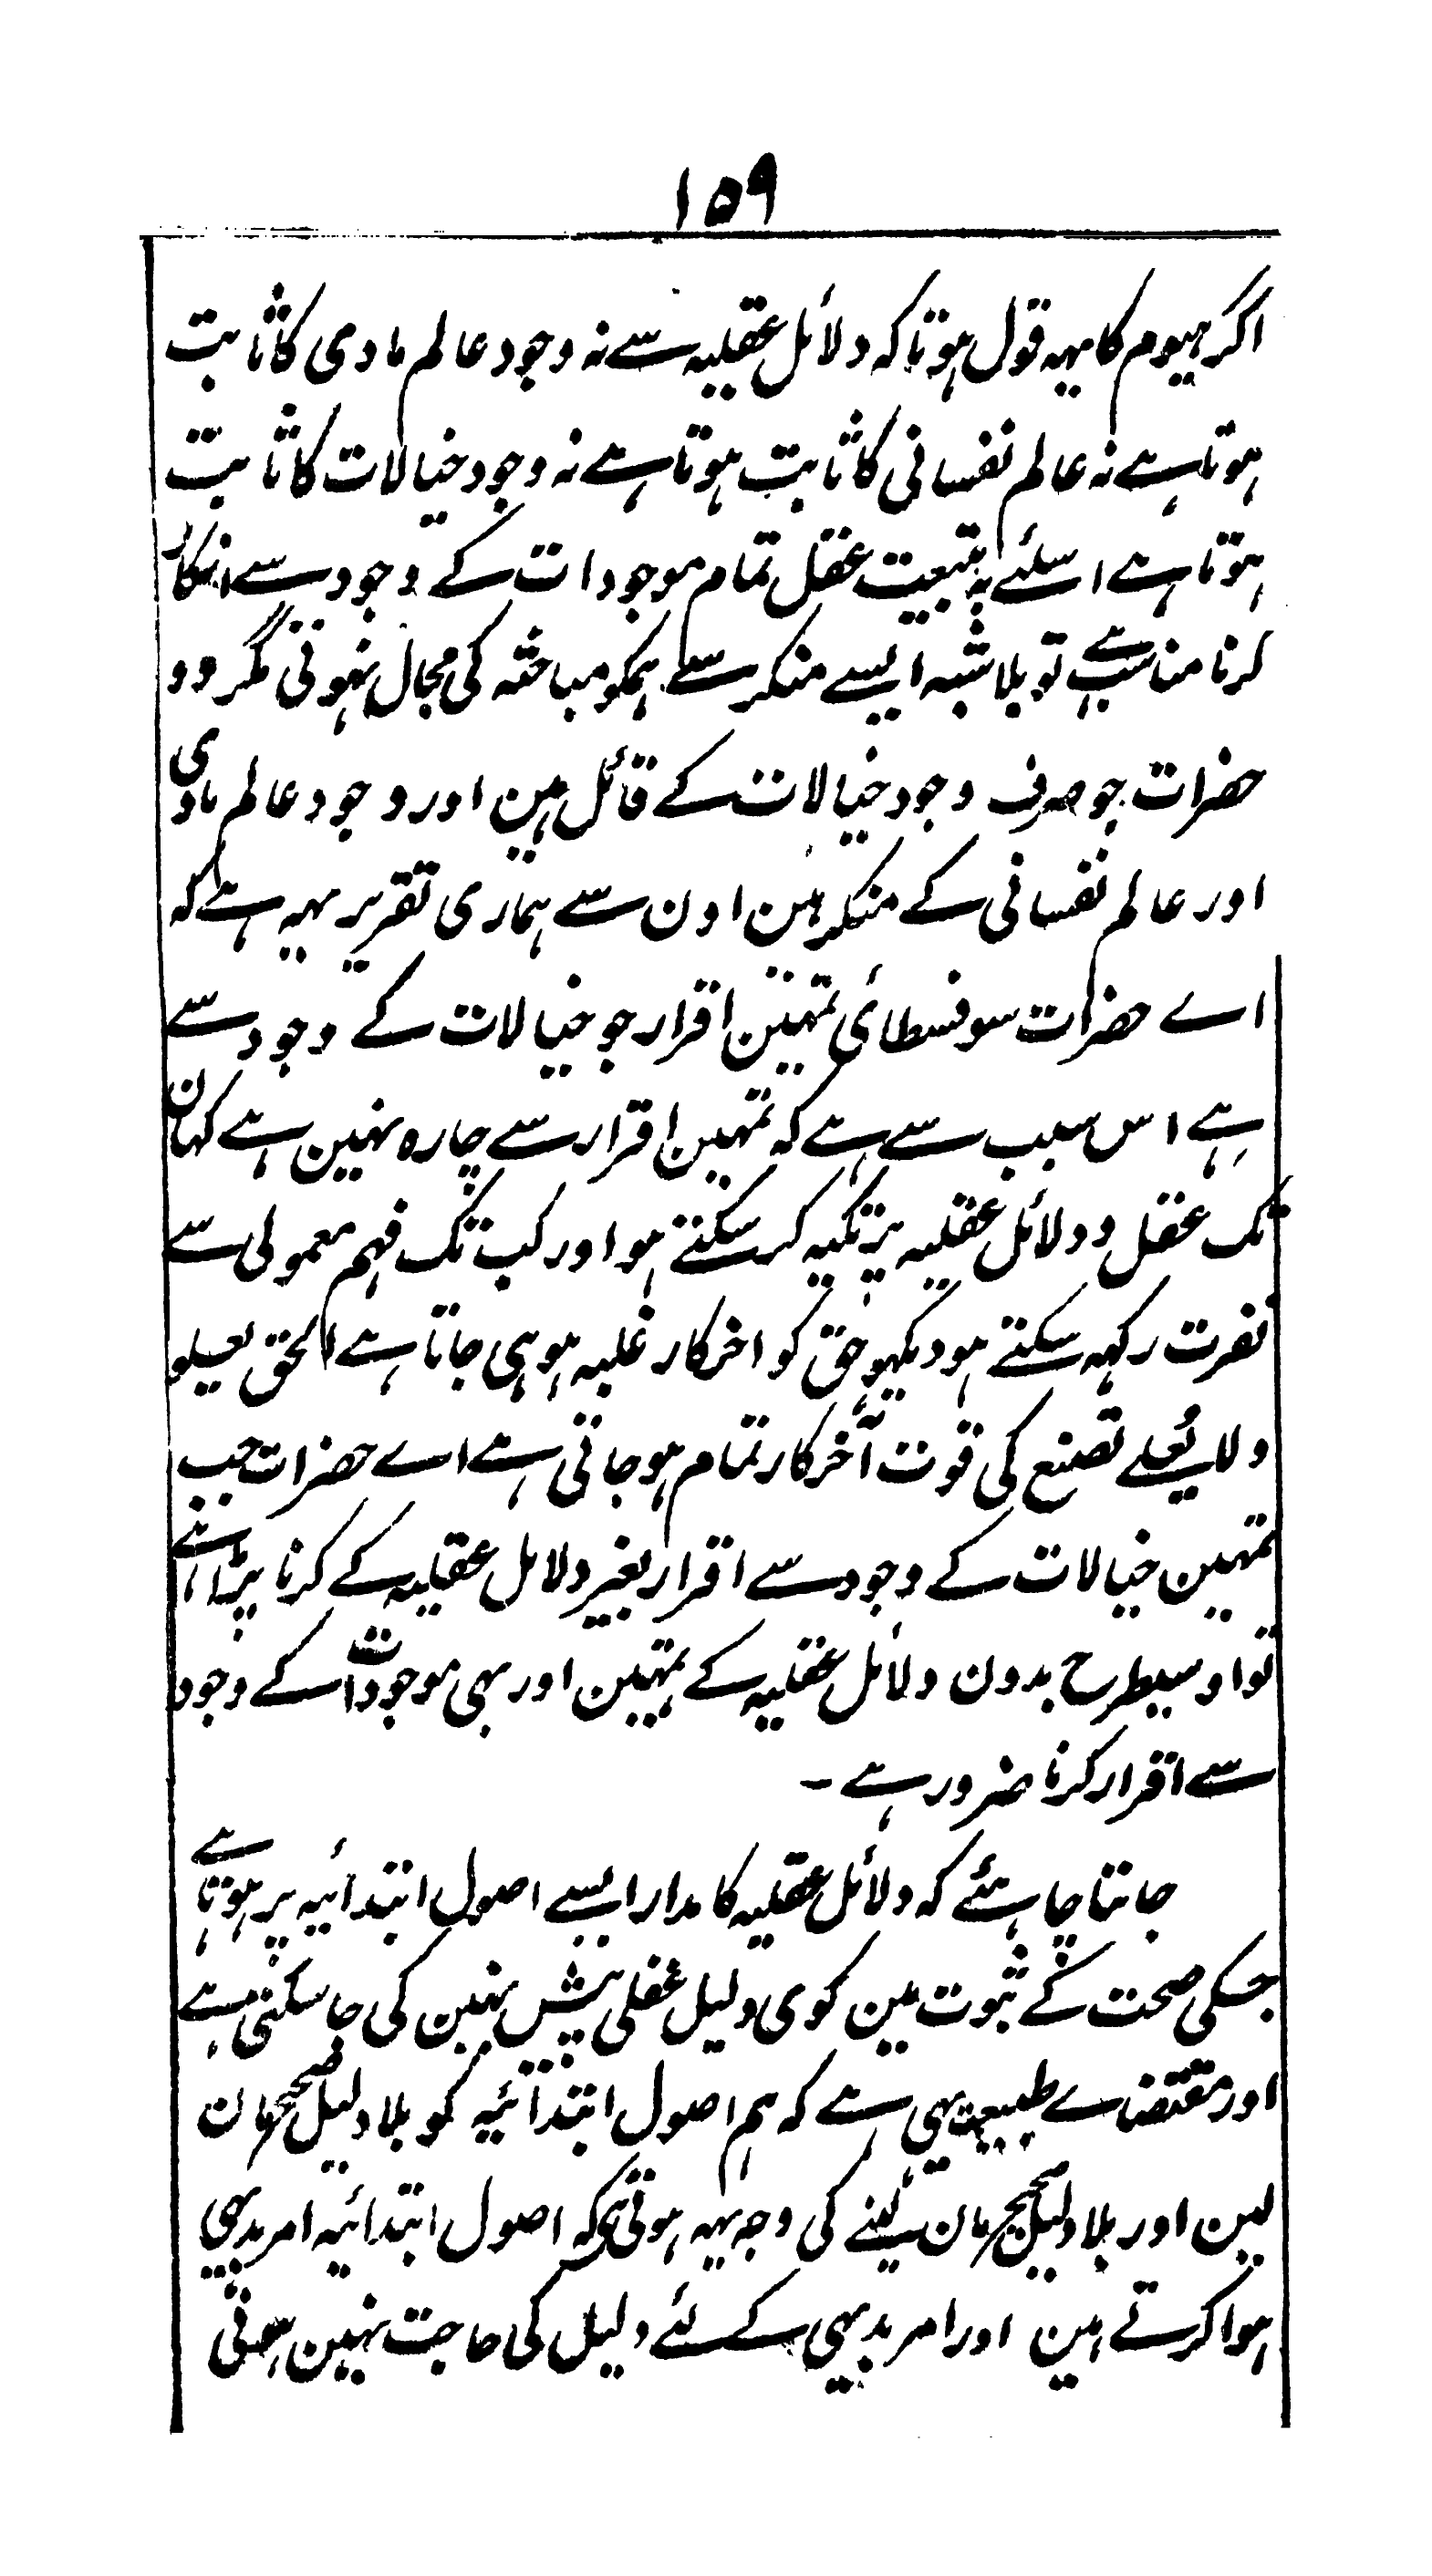 ۱۵۹
اگر ہیوم کا یہہ قول ہوتا کہ دلائل عقلیہ سے نہ وجود عالم مادی کا ثابت
ہوتا ہے نہ عالم نفسانی کا ثابت ہوتا ہے نہ وجود خیالات کا ثابت
ہوتا ہے اسلئے بہ تبعیت عقل تمام موجودات کے وجود سے انکار
کرنا مناسب ہے تو بلا شبہ ایسے منکر سے ہمکو مباحثہ کی مجال نہوتی مگر وو
حضرات جو صرف وجود خیالات کے قائل ہین اور وجود عالم مادی
اور عالم نفسانی کے منکر ہین اون سے ہماری تقریر یہہ ہے کہ
اے حضرات سوفسطائی تمہین اقرار جو خیالات کے وجود سے
ہے اس سبب سے ہے کہ تمہین اقرار سے چارہ نہین ہے کہان
تک عقل و دلائل عقلیہ پر تکیہ کر سکتے ہو اور کب تک فہم معمولی سے
نفرت رکہہ سکتے ہو دیکہو حق کو اخر کار غلبہ ہو ہی جاتا ہے الحق یعلو
ولا یُعلے تصنع کی قوت آخر کار تمام ہو جاتی ہے اے حضرات جب
تمہین خیالات کے وجود سے اقرار بغیر دلائل عقلیہ کے کرنا پڑا ہے
تو اوسیطرح بدون دلائل عقلیہ کے تمہین اور بہی موجودات کے وجود
سے اقرار کرنا ضرور ہے ۔
جاننا چاہئے کہ دلائل عقلیہ کا مدار ایسے اصول ابتدائیہ پر ہوتا ہے
جسکی صحت کے ثبوت مین کوی دلیل عقلی پیش نہین کی جا سکتی ہے
اور مقتضاے طبیعت یہی ہے کہ ہم اصول ابتدائیہ کو بلا دلیل صحیح مان
لین اور بلا دلیل صحیح مان لینے کی وجہ یہہ ہوتی ہی کہ اصول ابتدائیہ امر بدیہی
ہوا کرتے ہین اور امر بدیہی کے لئے دلیل کی حاجت نہین ہوتی